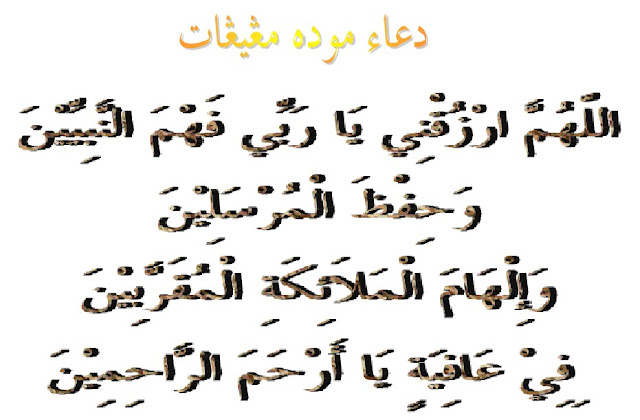 دعاء موده مڠيڠات
اللَّهُمَّ ارْزُقْنِي يَا رَبِّي فَهْمَ النَّبِيِّيْنَ
وَحِفْظَ الْمُرْسَلِيْنَ
وَإِلْهَامَ الْمَلَائِكَةِ الْمُقَرَّبِيْنَ
فِيْ عَافِيَةٍ يَا أَرْحَمَ الرَّاحِمِيْنَ